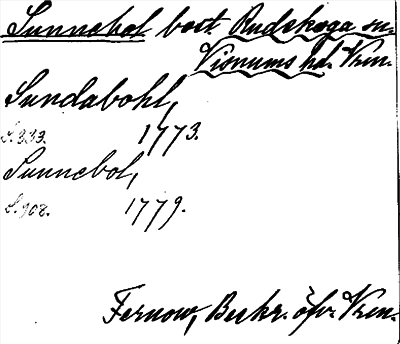 Sunnebol bost Rudskoga sn.
Visnums hd. Vrm.
Sundabohl,
S. 333. 1773.
Sunnebol,
S. 908. 1779.
Fernow, Beskr. öfv. Vrm.